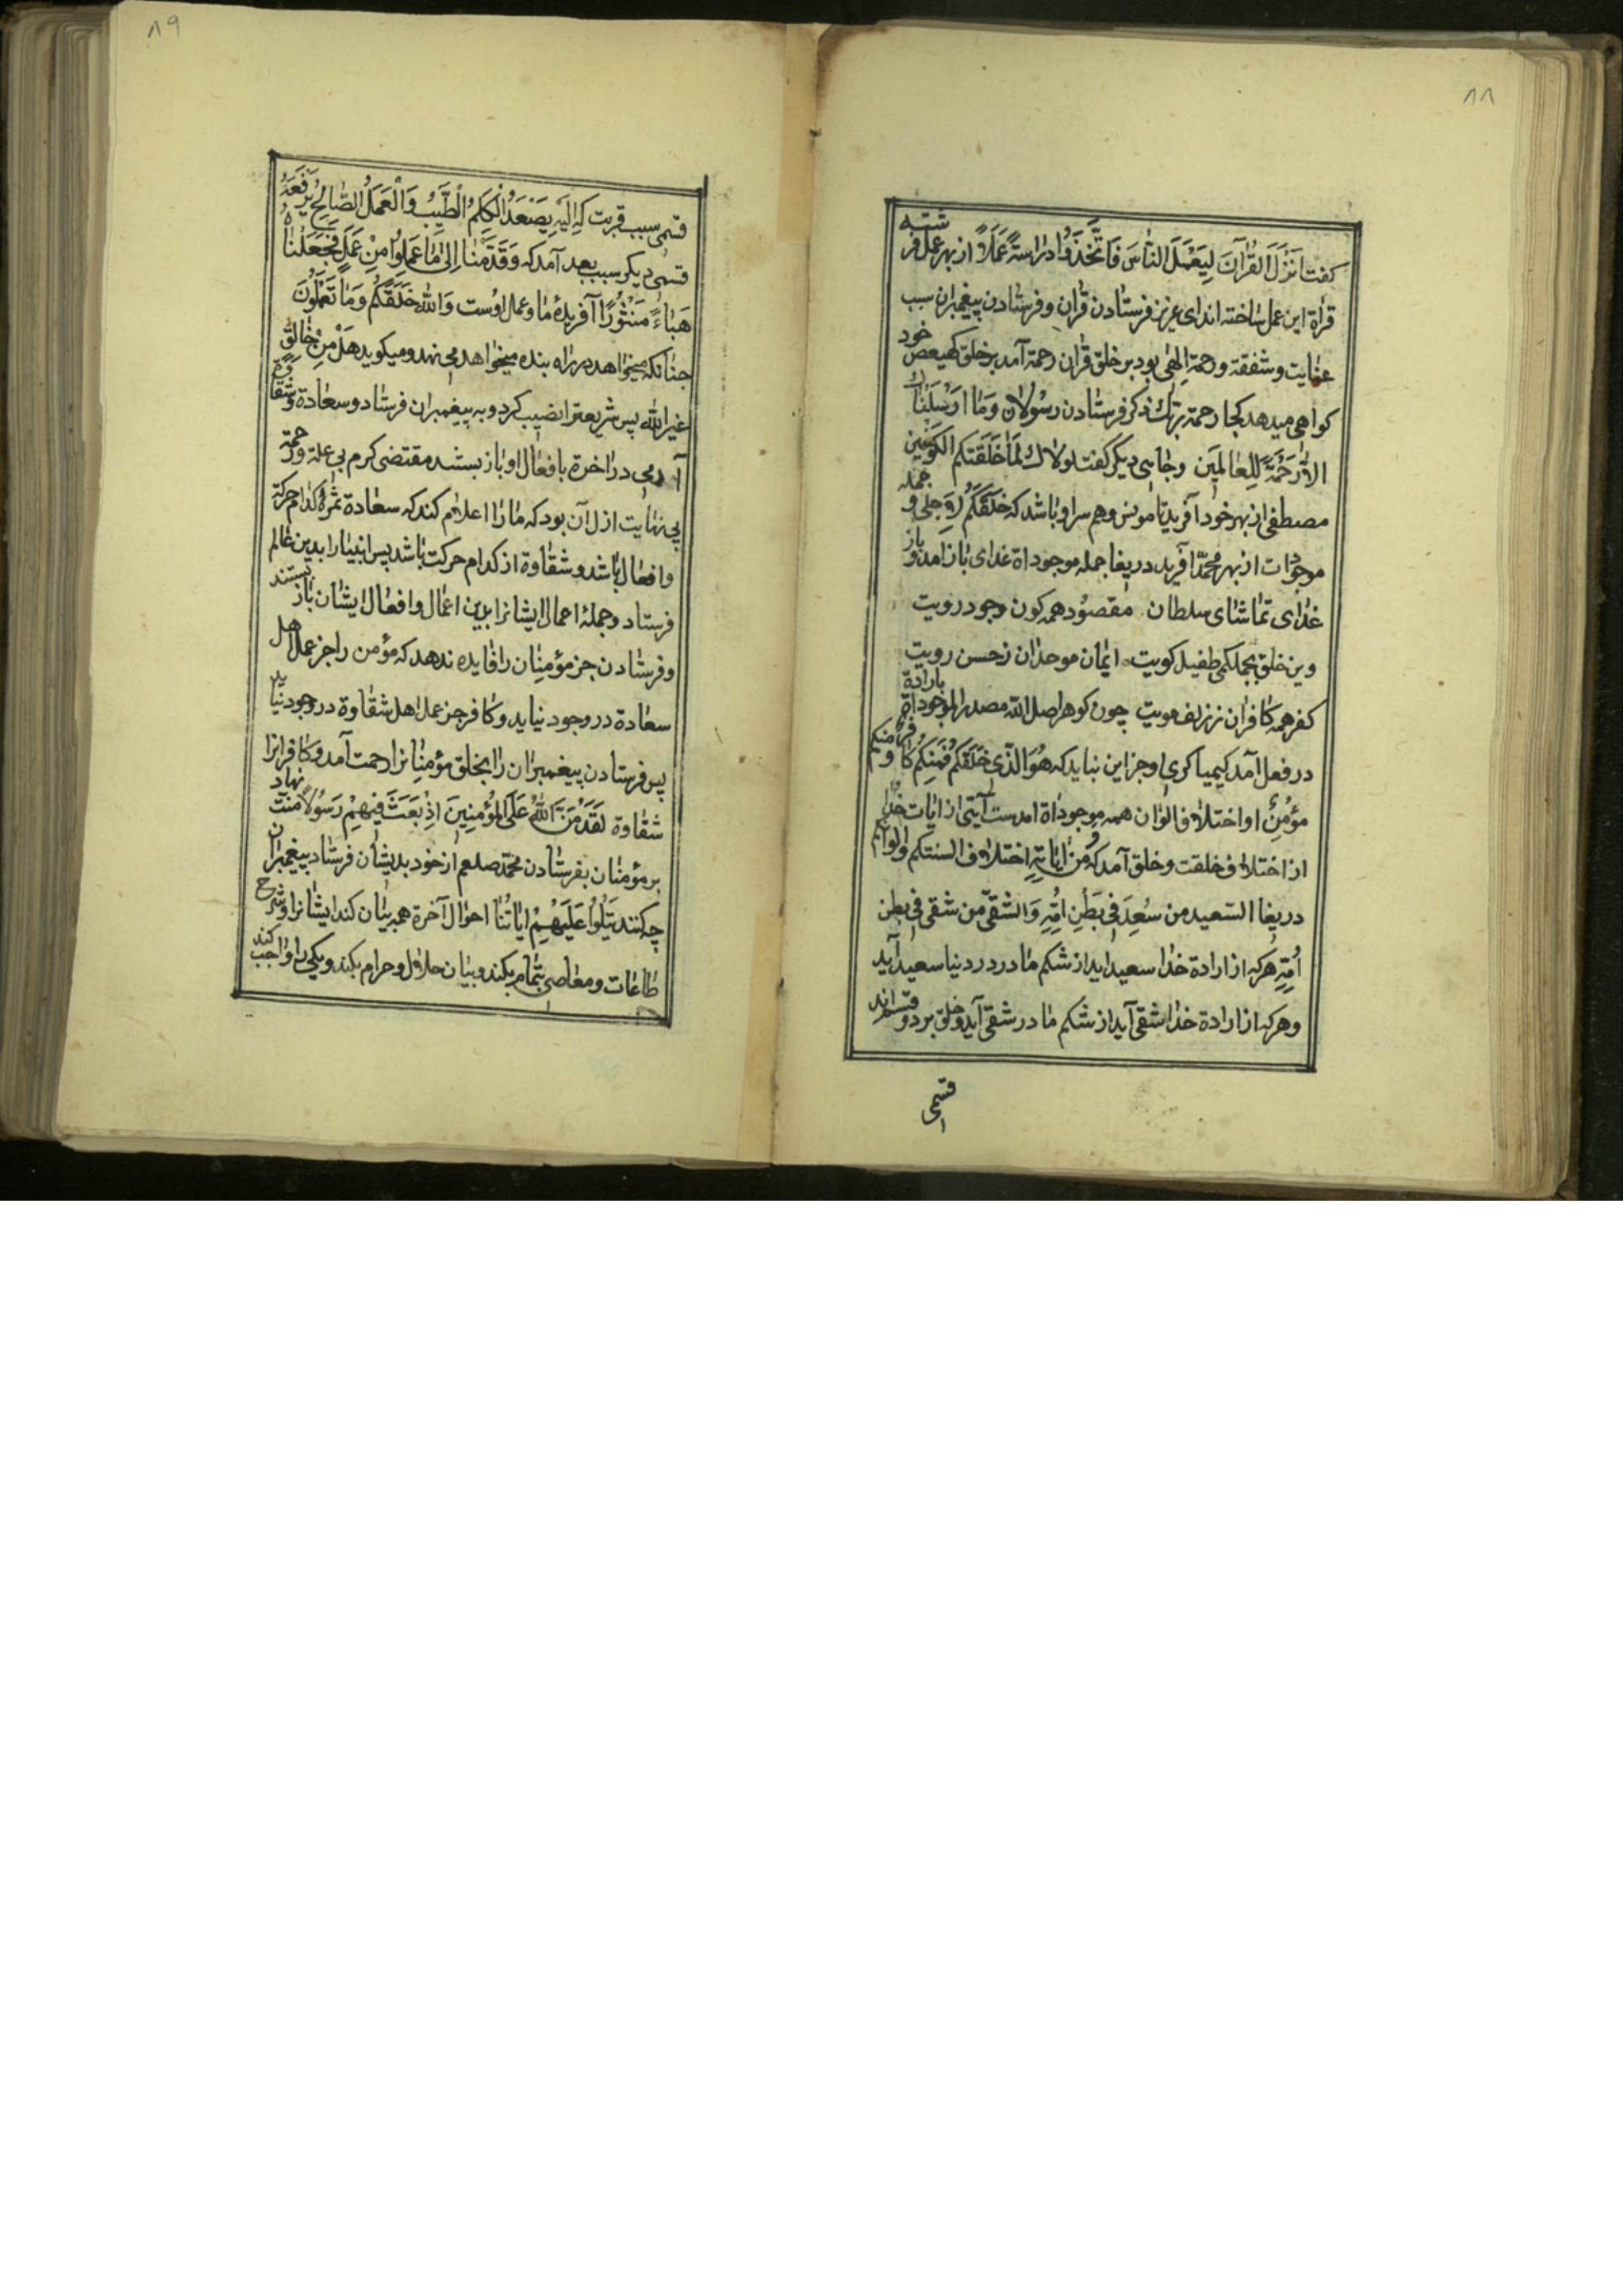 ۸۸
کفت انزل القُرآنَ لِیَعْمَلَ النّاسَ فَاتَّخَذُوا دراستهُ عَمَلاً از بهر عمل فرشته
قراة این عمل ساخته اند ای عزیز فرستادن قران و فرستادن پیغمبران سبب
عنایت و شفقة و رحمة اِلهٰی بود بر خلق قران رحمة آمد بر خلق کهیعص خود
کواهی میدهد کجا رحمة ربّك ذکر فرستادن رسُولان وَمٰا اَرْسَلْنٰاك
الاّ رَحْمَةً لِلعٰالمِینَ وجٰایی دیکر کفت لولاك لَمٰا خَلَقتکم الکَوْنَیْن
مصطفٰی از بهر خود آفرید تا مونس و هم سر او بٰاشد که خَلَقَکُم لِاَجلی و جمله
موجودٰات از بهر محمّد آفرید دریغا جمله موجوداة غذای بٰاز آمد و باز
غذٰای تمٰاشٰای سلطان مقصُود همه کون وجود رویت
وین خلق بجملکی طفیل کویت ایمٰان موحدٰان ز حسن رویت
کفر همه کافران ز زلف مویت چون کوهر اصل اللّه مصدر الموجوداة بارادة
در فعل آمد کیمیا کری او جز این نباید که هُوَ الَّذی خَلَقَکُم فَمِنکُم کافر و منکم
مؤمنٌ او اختلاف الوٰان همه موجودٰاة امدست آیتی از ایٰات خدٰا
از اختلاف خلقت و خلق آمد که وَمن ایٰاتِهِ اختلاف السنتکم والوانکم
دریغا السّعید من سُعِدَ فی بَطْنِ اُمِّهِ وَالشّقیّ من شقی فی بطن
اُمِّهِ هرکه از ارادة خدٰا سعید اید از شکم مٰادر در دنیا سعید آید
و هرکه از ارادة خدٰا شقی آید از شکم مٰادر شقی آید و خلق بر دو قسم اند
قسمی
۸۹
قسمی سبب قربت که اِلَیْهِ یَصْعَدُ الْکَلِمُ الْطَّیِّبُ وَالْعَمَلُ الصّٰالِحُ یَرْفَعُهُ
قسمی دیکر سبب بعد آمد که وَقَدِمْنٰا اِلیٰ مٰا عَمِلُوا مِنْ عَمَلٍ فَجَعَلْنٰاهُ
هَبٰاءً مَنْثُورًا آفریدهٔ مٰا و عمل اوست وَاللّٰه خَلَقَکُم وَمٰا تَعْمَلُونَ
جنٰانکه میخوٰاهد در رٰاه بنده میخوٰاهد می نهد و میکوید هَلْ مِنْ خٰالِقٍ
غیر اللّٰه پس شریعترا نصیب کرد و به پیغمبران فرستاد و سعٰادة و شقاوة
آدمی در اخرة بافعٰال او باز بستند مقتضی کرم بی علة و رحمة
بی نهٰایت ازل آن بود که مٰا را اعلام کند که سعٰادة ثمرهٔ کدٰام حرکة
وافعٰال بٰاشد و شقٰاوة از کدام حرکت بٰاشد پس انبیٰا را بدین عٰالم
فرستاد و جملهٔ اعمال ایشانرا برین اعمٰال و افعٰال ایشٰان باز بستند
و فرستٰادن جز مؤمنِان را فایده ندهد که مؤمن را جز عمل اهل
سعٰادة در وجود نیاید و کافر جز عمل اهل شقٰاوة در وجود نیٰاید
پس فرستٰادن پیغمبرٰان رٰا بخلق مؤمنِانرا رحمت آمد و کافرانرا
شقٰاوة لقَدْ مَنَّ اللّٰهُ عَلَی المُؤْمِنِینَ اِذْ بَعَثَ فِیهِمْ رَسُولاً منّت نهاد
بر مؤمنٰان بفرستٰادن محمّد صلعم از خود بدیشٰان فرستاد پیغمبرٰان
چه کنند یَتْلُوا عَلَیْهِمْ ایٰاتُنٰا احوٰال آخرة همه بیٰان کند ایشٰانرا و شرح
طٰاعٰات و معٰاصی بتمٰام بکند و بیٰان حلال و حرام بکند و یکی را واجب کند